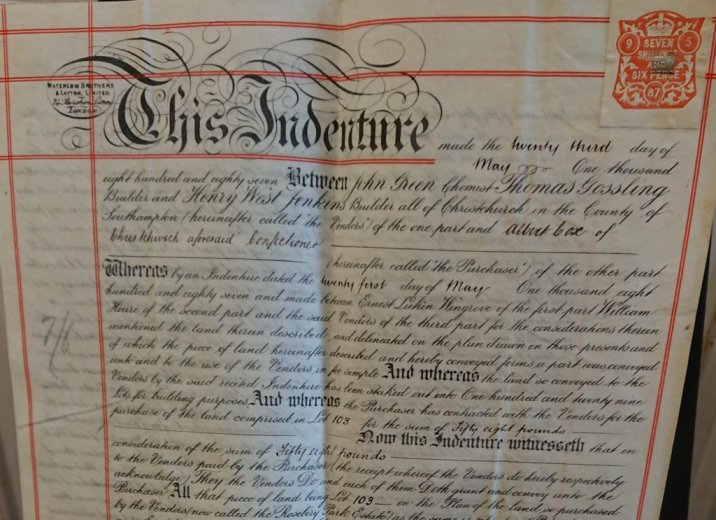 WATERLOW BROTHERS
& LAYTON, LIMITED,
LONDON
9 5
SEVEN
SHILLINGS
AND
SIX PENCE
87
This Indenture made the twenty third day of
May One thousand
eight hundred and eighty seven Between John Green Chemist Thomas Gossling
Builder and Henry West Jenkins Builder all of Christchurch in the County of
Southampton (hereinafter called the Vendors) of the one part and Albert Cox of
Christchurch aforesaid Confectioner
(hereinafter called "the Purchaser") of the other part
Whereas by an Indenture dated the twenty first day of May One thousand eight
hundred and eighty seven and made between Ernest Lukin Wingrove of the first part William
Hoare of the second part and the said Vendors of the third part for the considerations therein
mentioned the land therein described and delineated on the plan drawn on those presents and
of which the piece of land hereinafter described and hereby conveyed forms a part was conveyed
unto and to the use of the Vendors in fee simple And whereas the land so conveyed to the
Vendors by the said recited Indenture has been staked out into One hundred and twenty nine
Lots for building purposes And whereas the Purchaser has contracted with the Vendors for the
purchase of the land comprised in Lot 103 for the sum of Fifty eight pounds
Now this Indenture witnesseth that in
consideration of the sum of Fifty eight pounds
to the Vendors paid by the Purchaser (the receipt whereof the Vendors do hereby respectively
acknowledge) They the Vendors Do and each of them Doth grant and convey unto the
Purchaser All that piece of land being Lot 103 on the Plan of the land so purchased
by the Vendors (now called the "Rosebery Park Estate") as the same